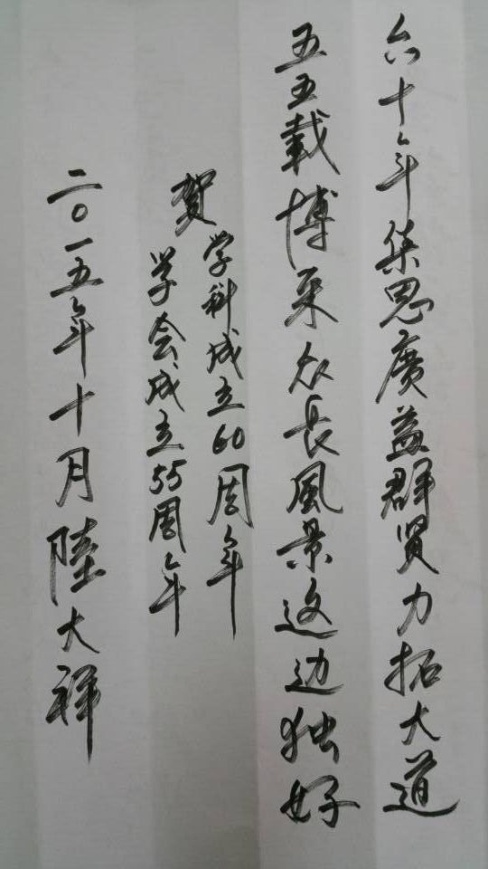 六十年集思廣益群贤力拓大道
五五載博采众長風景这边独好
賀
学科成立60周年
学会成立55周年
二〇一五年十月陸大祥